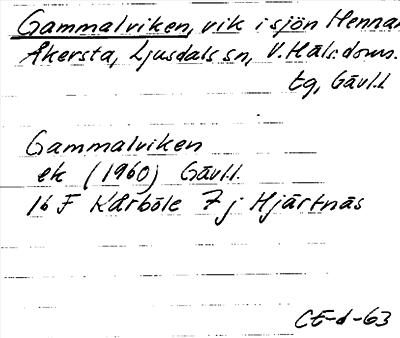 Gammalviken, vik i sjön Hennan
Åkersta, Ljusdals sn, V. Häls. doms.
tg, Gävl.l.
Gammalviken
ek (1960) Gävl.l.
16 F Kårböle 7 j Hjärtnäs
CE-d-63